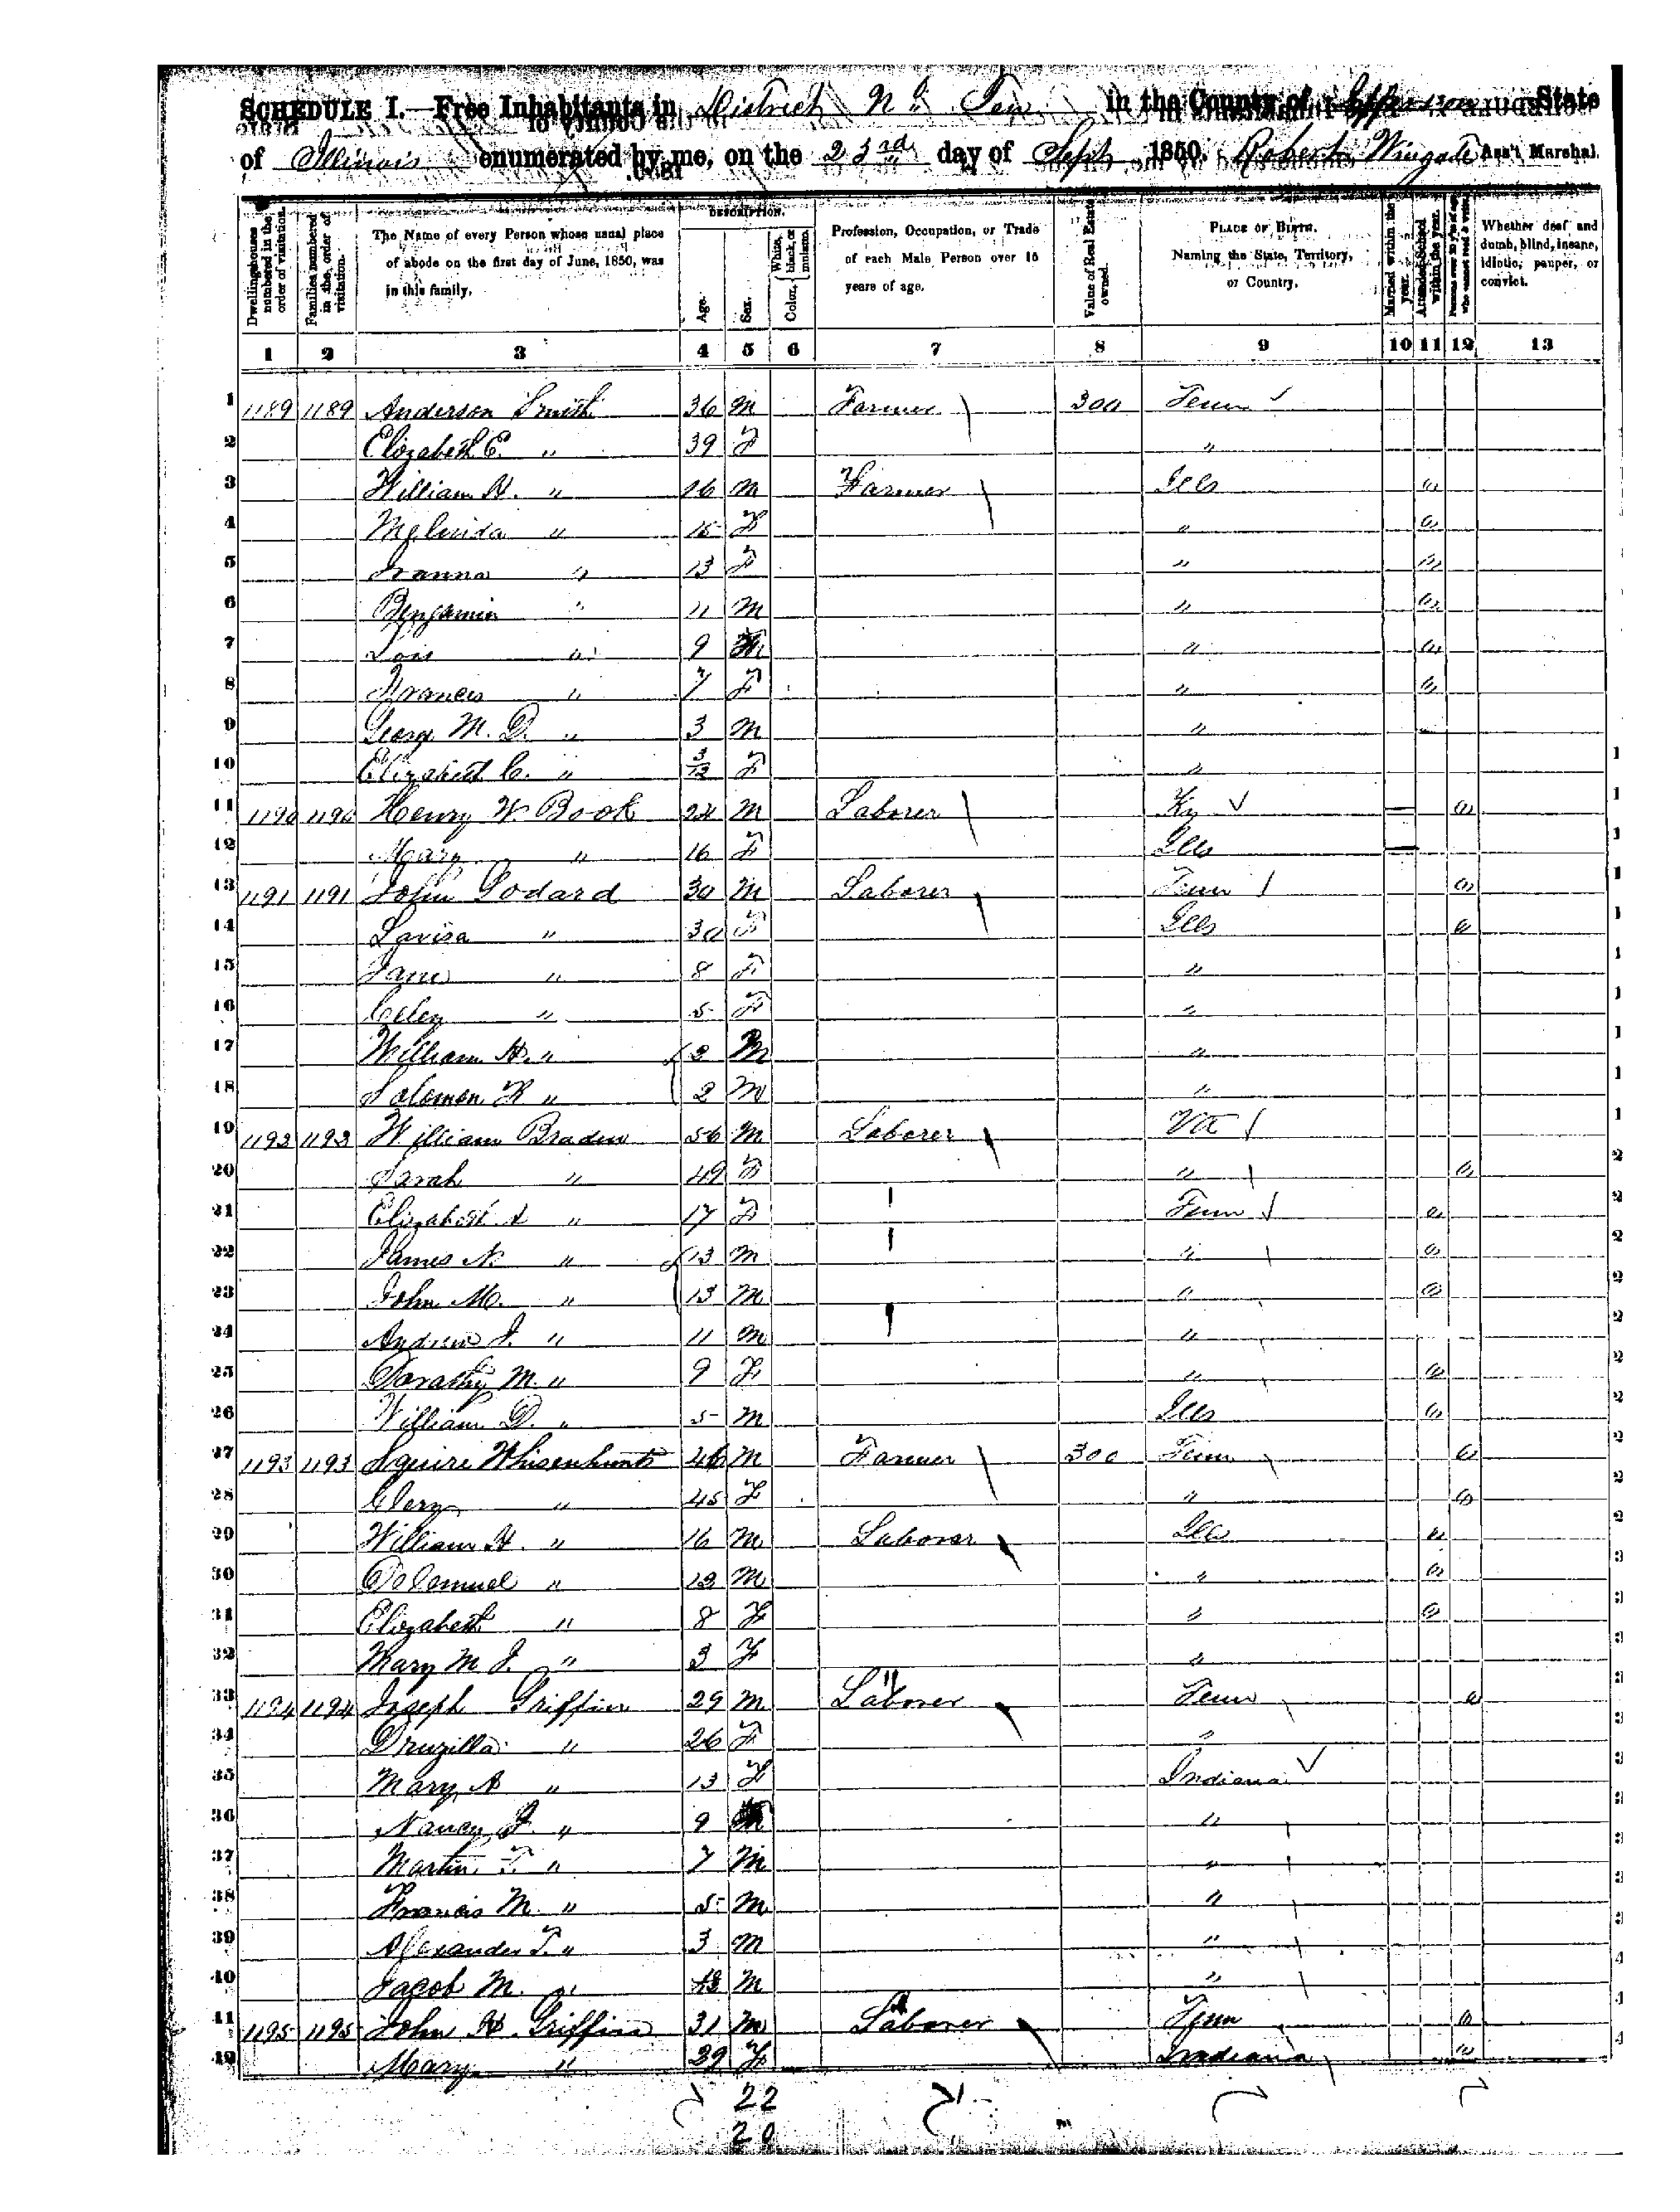 SCHEDULE I.—Free Inhabitants in District No. Ten in the County of Jefferson State
of Illinois enumerated by me, on the 23rd day of Sept 1850. Robert Wingate Ass't Marshal.
Dwelling-houses numbered in the order of visitation.
Families numbered in the order of visitation.
The Name of every Person whose usual place of abode on the first day of June, 1850, was in this family.
DESCRIPTION.
Age.
Sex.
Color, { White, black, or mulatto.
Profession, Occupation, or Trade of each Male Person over 15 years of age.
Value of Real Estate owned.
PLACE OF BIRTH. Naming the State, Territory, or Country.
Married within the year.
Attended School within the year.
Persons over 20 y'rs of age who cannot read & write.
Whether deaf and dumb, blind, insane, idiotic, pauper, or convict.
1 2 3 4 5 6 7 8 9 10 11 12 13
1 1189 1189 Anderson Smith 36 M Farmer 300 Tenn
2 Elizabeth E. " 39 F "
3 William H. " 16 M Farmer Ills
4 Melinda " 15 F "
5 " 13 F "
6 Benjamin " 11 M "
7 Lois " 9 "
8 Frances " 7 F "
9 George M. D. " 3 M "
10 Elizabeth C. " 3/12 F "
11 1190 1190 Henry W Book 24 M Laborer Ky
12 Mary " 16 F Ills
13 1191 1191 John Godard 30 M Laborer Tenn
14 Lavisa " 30 F Ills
15 Jane " 8 F "
16 Celey " 5 F "
17 William H. " 2 M "
18 Solomon R " 2 M "
19 1192 1192 William Braden 56 M Laborer Va
20 Sarah " 49 F "
21 Elizabeth A " 17 F Tenn
22 James N. " 13 M "
23 John M. " 13 M "
24 Andrew J. " 11 M "
25 Dorathy M. " 9 F "
26 William D. " 5 M Ills
27 1193 1193 Squire Whisenhunt 46 M Farmer 300 Tenn
28 " 45 F "
29 William H. " 16 M Laborer Ills
30 " 13 M "
31 Elizabeth " 8 F "
32 Mary M J. " 3 F "
33 1194 1194 Joseph Griffin 29 M Laborer Tenn
34 Druzilla " 26 F "
35 Mary A " 13 F Indiana
36 Nancy J. " 9 "
37 Martin T. " 7 M "
38 Francis M. " 5 M "
39 Alexander T. " 3 M "
40 Jacob M. " M "
41 1195 1195 John H. Griffin 31 M Laborer Tenn
42 Mary " 39 F Indiana
22
20